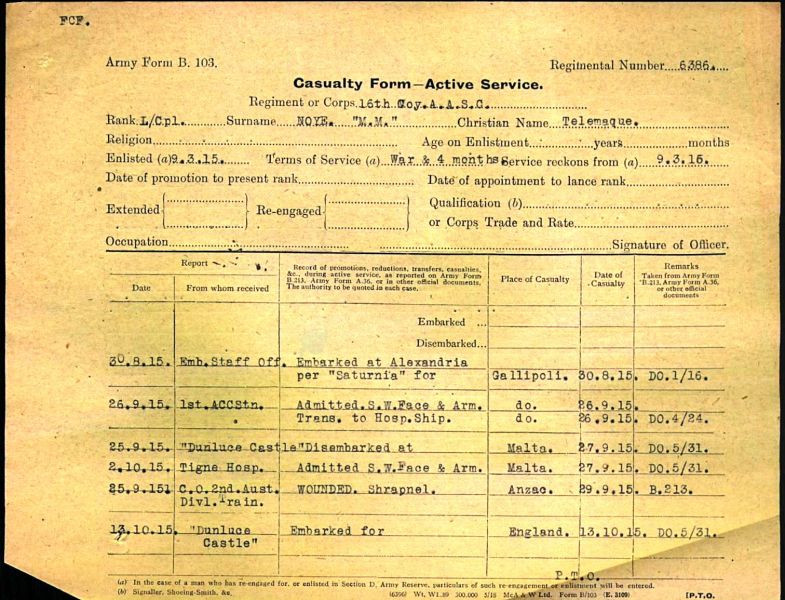 FCF.
Army Form B. 103.
Regimental Number 6386.
Casualty Form—Active Service.
Regiment or Corps. 16th Coy. A.A.S.C.
Rank L/Cpl. Surname NOYE. "M.M." Christian Name Telemaque.
Religion Age on Enlistment years months
Enlisted (a) 9.3.15. Terms of Service (a) War & 4 months. Service reckons from (a) 9.3.15.
Date of promotion to present rank Date of appointment to lance rank
Extended Re-engaged Qualification (b)
or Corps Trade and Rate
Occupation Signature of Officer.
Report
Date
From whom received
Record of promotions, reductions, transfers, casualties,
&c., during active service, as reported on Army Form
B.213, Army Form A.36, or in other official documents.
The authority to be quoted in each case.
Place of Casualty
Date of
Casualty
Remarks
Taken from Army Form
B.213, Army Form A.36,
or other official
documents
Embarked ...
Disembarked...
30.8.15. Emb.Staff Off. Embarked at Alexandria
per "Saturnia" for Gallipoli. 30.8.15. DO.1/16.
26.9.15. 1st.ACCStn. Admitted.S.W.Face & Arm. do. 26.9.15.
Trans. to Hosp.Ship. do. 26.9.15. DO.4/24.
25.9.15. "Dunluce Castle" Disembarked at Malta. 27.9.15. DO.5/31.
2.10.15. Tigne Hosp. Admitted S.W.Face & Arm. Malta. 27.9.15. DO.5/31.
25.9.151 C.O.2nd.Aust. WOUNDED. Shrapnel. Anzac. 29.9.15. B.213.
Divl.Train.
13.10.15. "Dunluce Embarked for England. 13.10.15. DO.5/31.
Castle"
P.T.O.
(a) In the case of a man who has re-engaged for, or enlisted in Section D, Army Reserve, particulars of such re-engagement or enlistment will be entered.
(b) Signaller, Shoeing-Smith, &c. (6396) Wt. W1.89 500.000 5/15 McA & W Ltd. Form B/103 (E. 3109) [P.T.O.